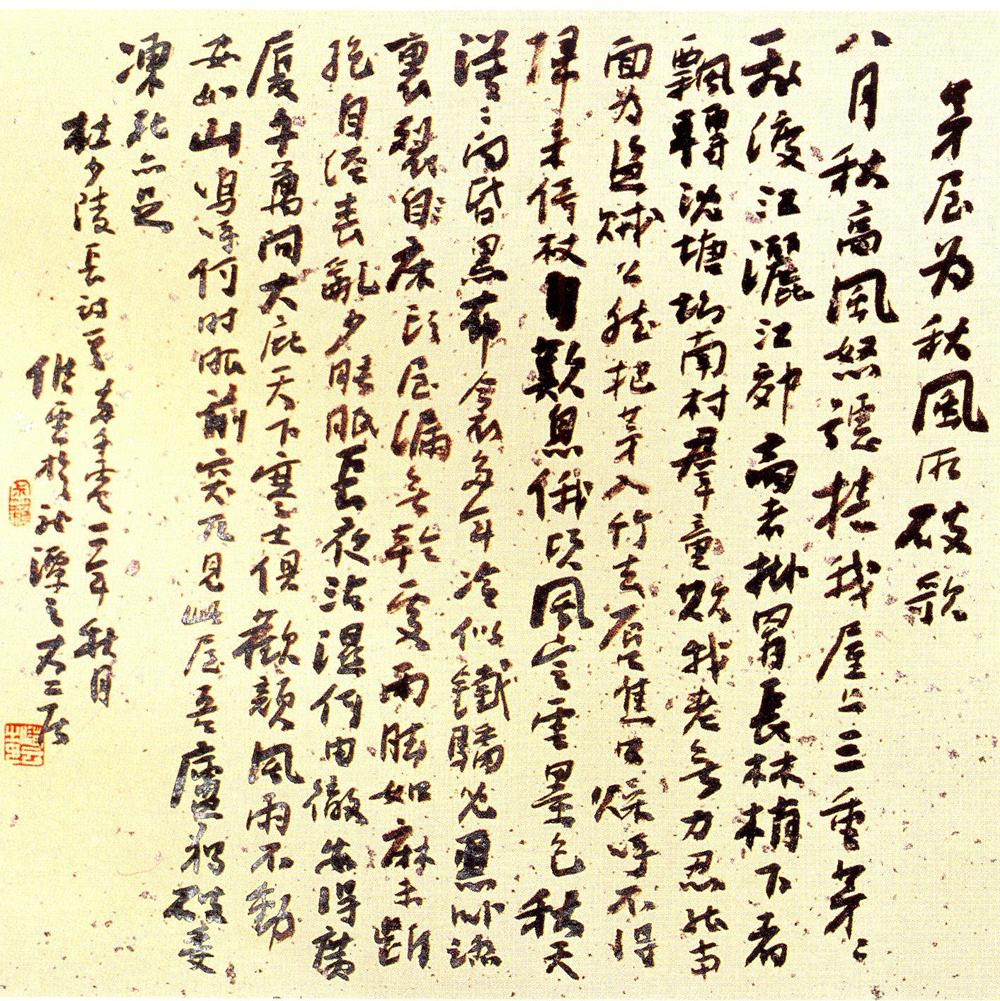 茅屋为秋風所破歌
八月秋高風怒號捲我屋上三重茅〻
飛渡江灑江郊高者掛罥長林梢下者
飄轉沈塘坳南村羣童欺我老無力忍能對
面为盜贼公然把茅入竹去唇焦口燥呼不得
歸来倚杖自歎息俄頃風定雲墨色秋天
漠〻向昏黑布衾多年冷似鐵驕兒惡卧踏
裏裂自床頭屋漏無乾處雨脚如麻未斷
自喪亂少睡眠長夜沾濕何由徹安得廣
厦千萬间大庇天下寒士俱歡顏風雨不動
安如山嗚呼何时眼前突兀見此屋吾廬獨破受
凍死亦足
杜少陵長诗一首千零一年秋月
雲於潭之大二居